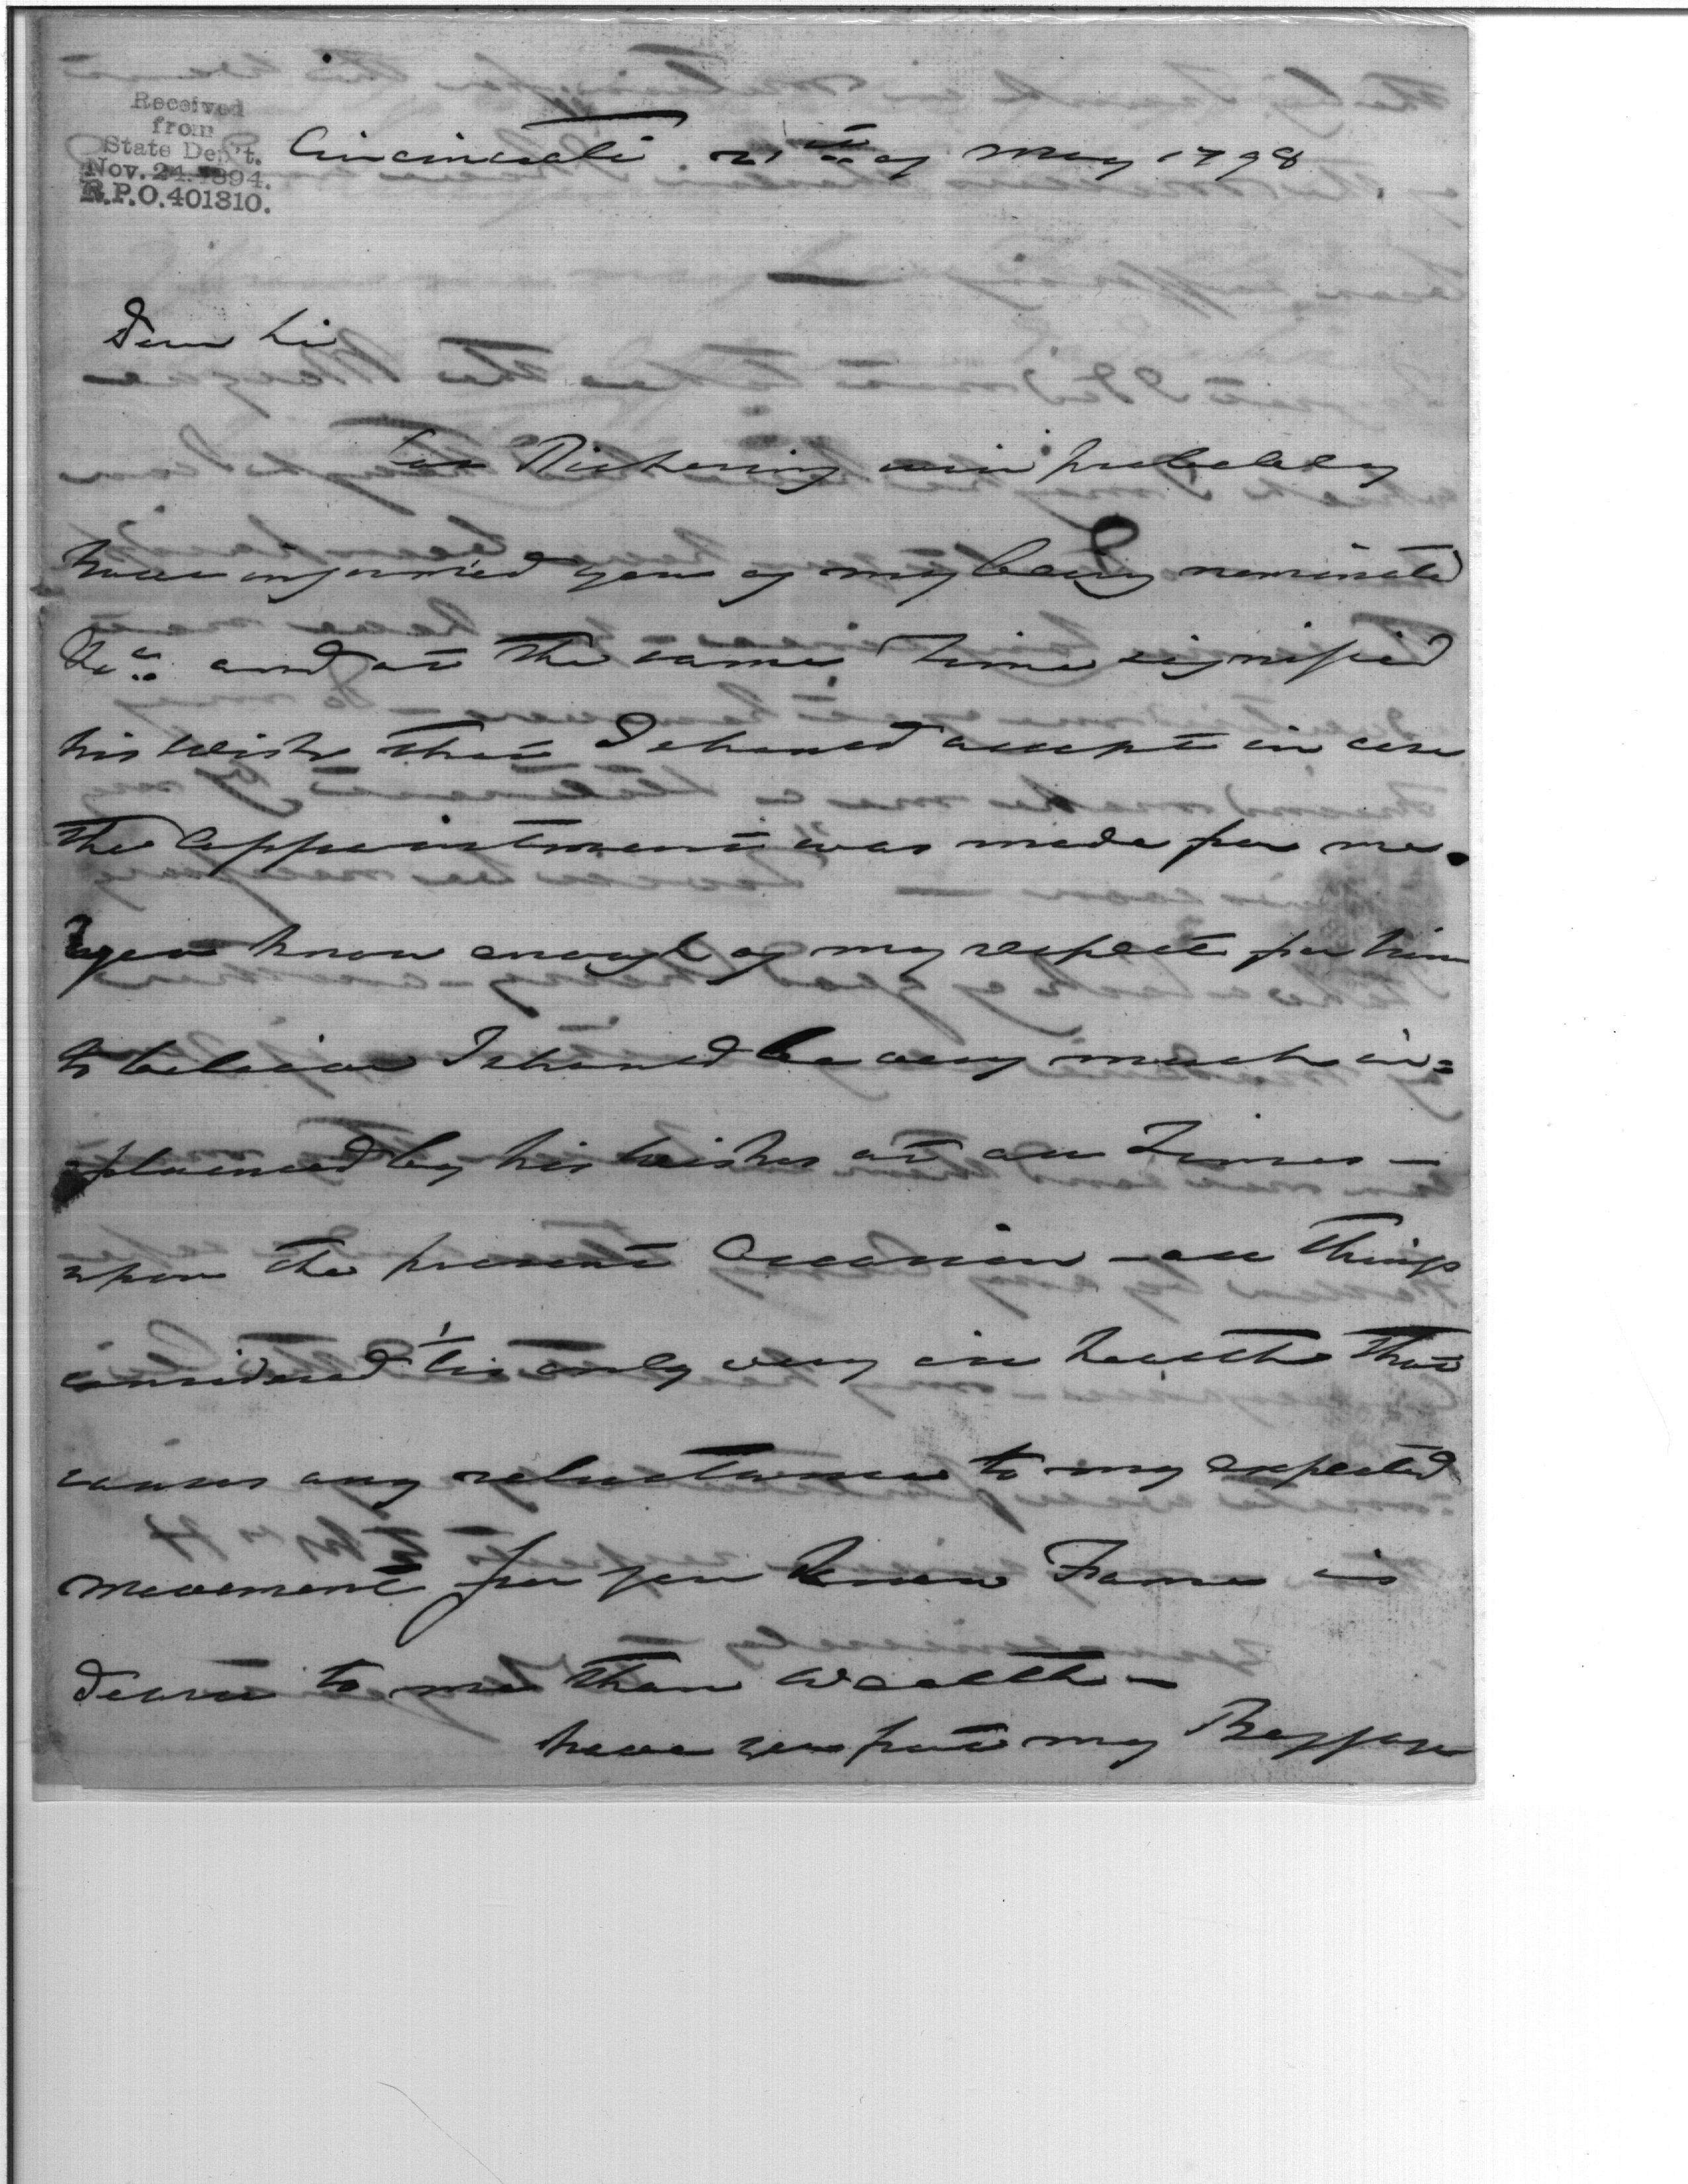 Received
from
State Dep't.
Nov. 24. 1894.
R.P.O. 401310.
Cincinnati 21st of May 1798
Dear Sir
Col Pickering will probably
have informed you of my being nominated
&c and at the same time signified
his wish that I should accept in case
the Appointment was made for me.
you know enough of my respect for him
to believe I should be very much in=
fluenced by his wishes at all Times —
upon the present Occasion - all things
considered 'tis only very ill health that
causes any reluctance to my expected
movement for you know Fame is
dearer to me than wealth —
have you put my Baggage